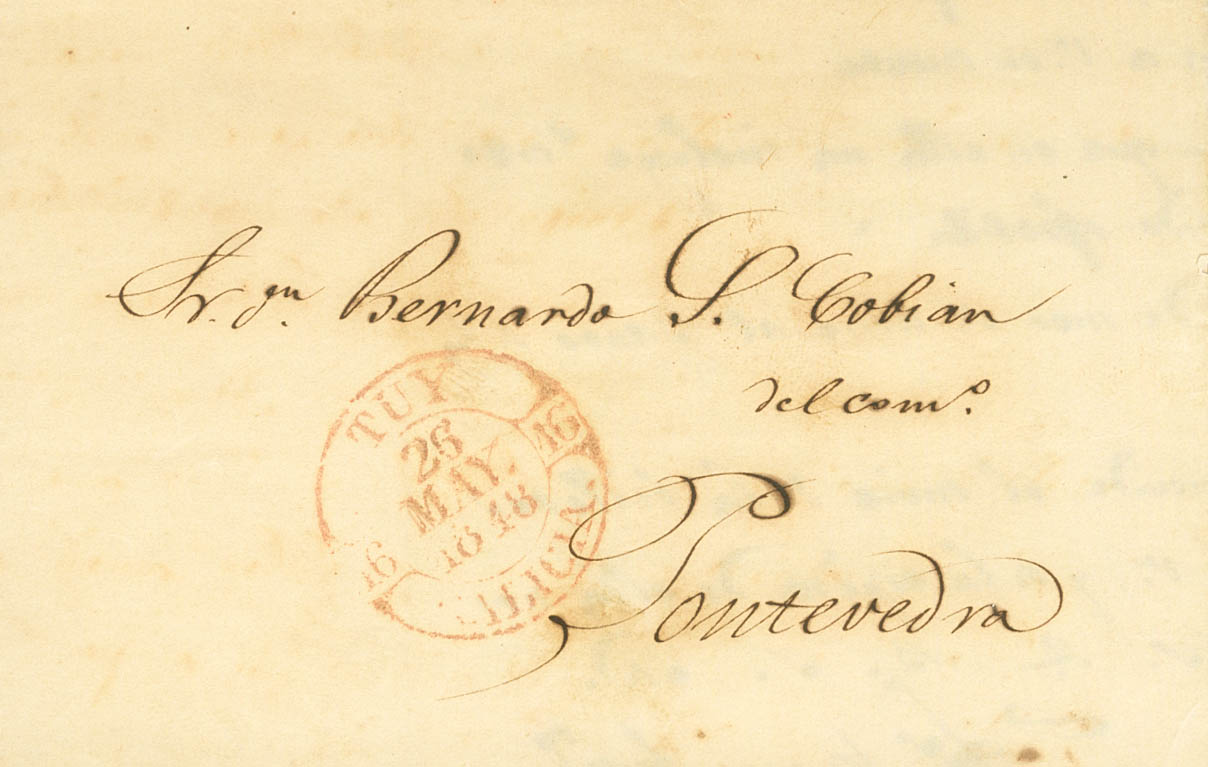 Sr. Dn. Bernardo S. Cobian
del comº.
Pontevedra
TUY
26
MAY.
1848
16
16
GALICIA.